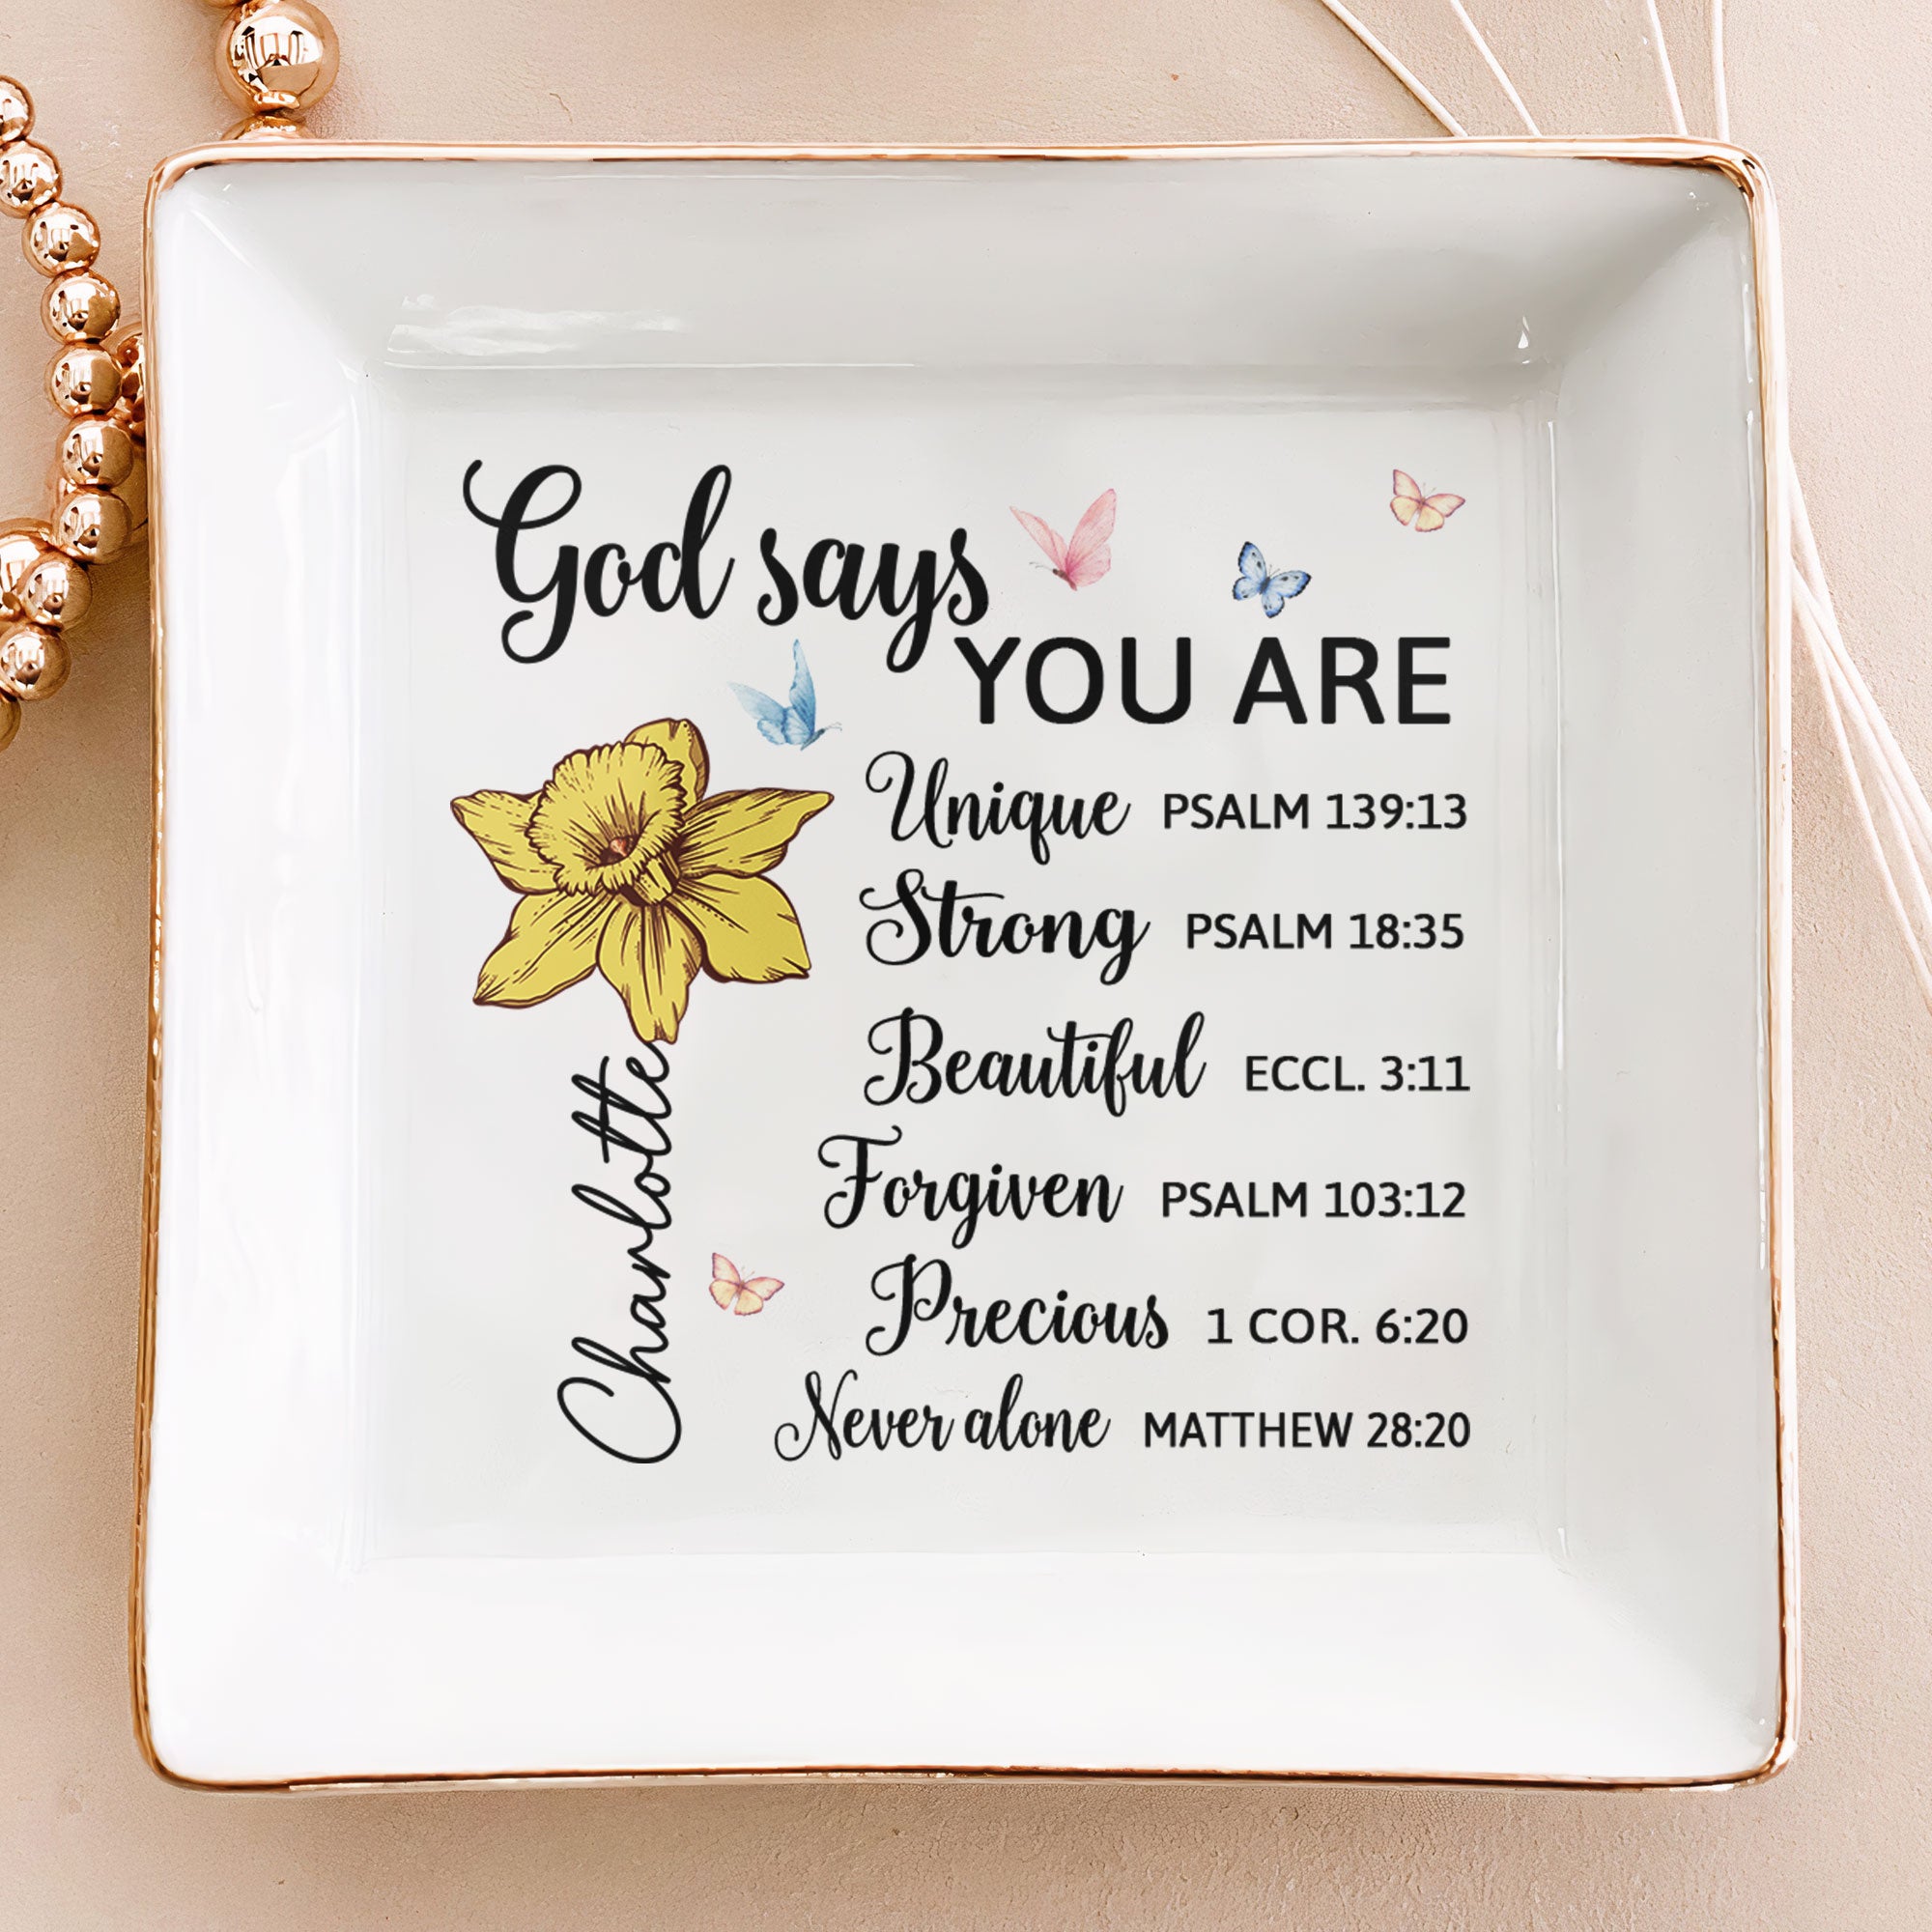 God says
YOU ARE
Unique PSALM 139:13
Strong PSALM 18:35
Beautiful ECCL. 3:11
Forgiven PSALM 103:12
Precious 1 COR. 6:20
Never alone MATTHEW 28:20
Charlotte